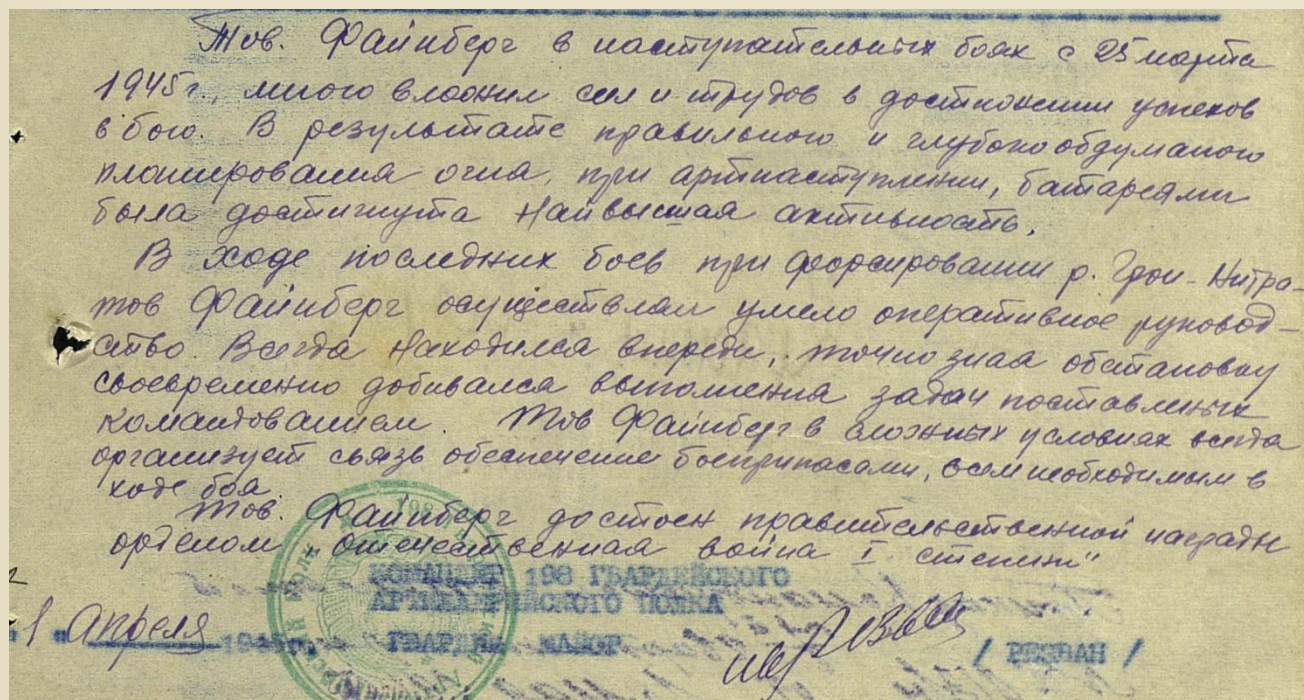 Тов. Файнберг в наступательных боях с 25 марта
1945г., много вложил сил и трудов в достижении успехов
в бою. В результате правильного и глубокообдуманого
планирования огня, при артнаступлении, батареями
была достигнута наивысшая активность.
В ходе последних боев при форсировании р. Грон-Нитра-
тов Файнберг осуществлял умело оперативное руковод-
ство. Всегда находился впереди, точно зная обстановку
своевременно добивался выполнения задач поставленых
командованием. Тов Файнберг в сложных условиях всегда
организует связь обеспечение боеприпасами, всем необходимым в
ходе боя.
Тов. Файнберг достоен правительственной награды
орденом „Отечественная война I степени"
КОМАНДИР 198 ГВАРДЕЙСКОГО
АРТИЛЛЕРИЙСКОГО ПОЛКА
"1" Апреля 1945г. ГВАРДИИ МАЙОР / РЕЗВАН /